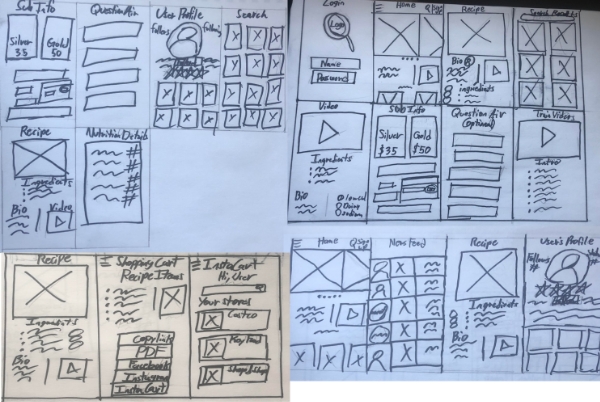 Sub Info
Silver
35
Gold
50
Question Air
User Profile
follows
following
Search
Recipe
Ingredients
Bio
Video
Nutrition Details
#
#
#
#
#
Login
Logo
Name
Password
Home
Recipe
Bio
ingredients
Search Results
Video
Ingredients
Bio
Sub Info
Silver
$35
Gold
$50
Question Air
(optional)
Train Videos
Intro
Recipe
Ingredients
Bio
Shopping Cart
Recipe Items
Copy link
PDF
Facebook
Instagram
InstaCart
InstaCart
Hi, User
Your stores
Costco
Shop & Stop
Home
News Feed
Recipe
Ingredients
Bio
User's Profile
Follows
#
#